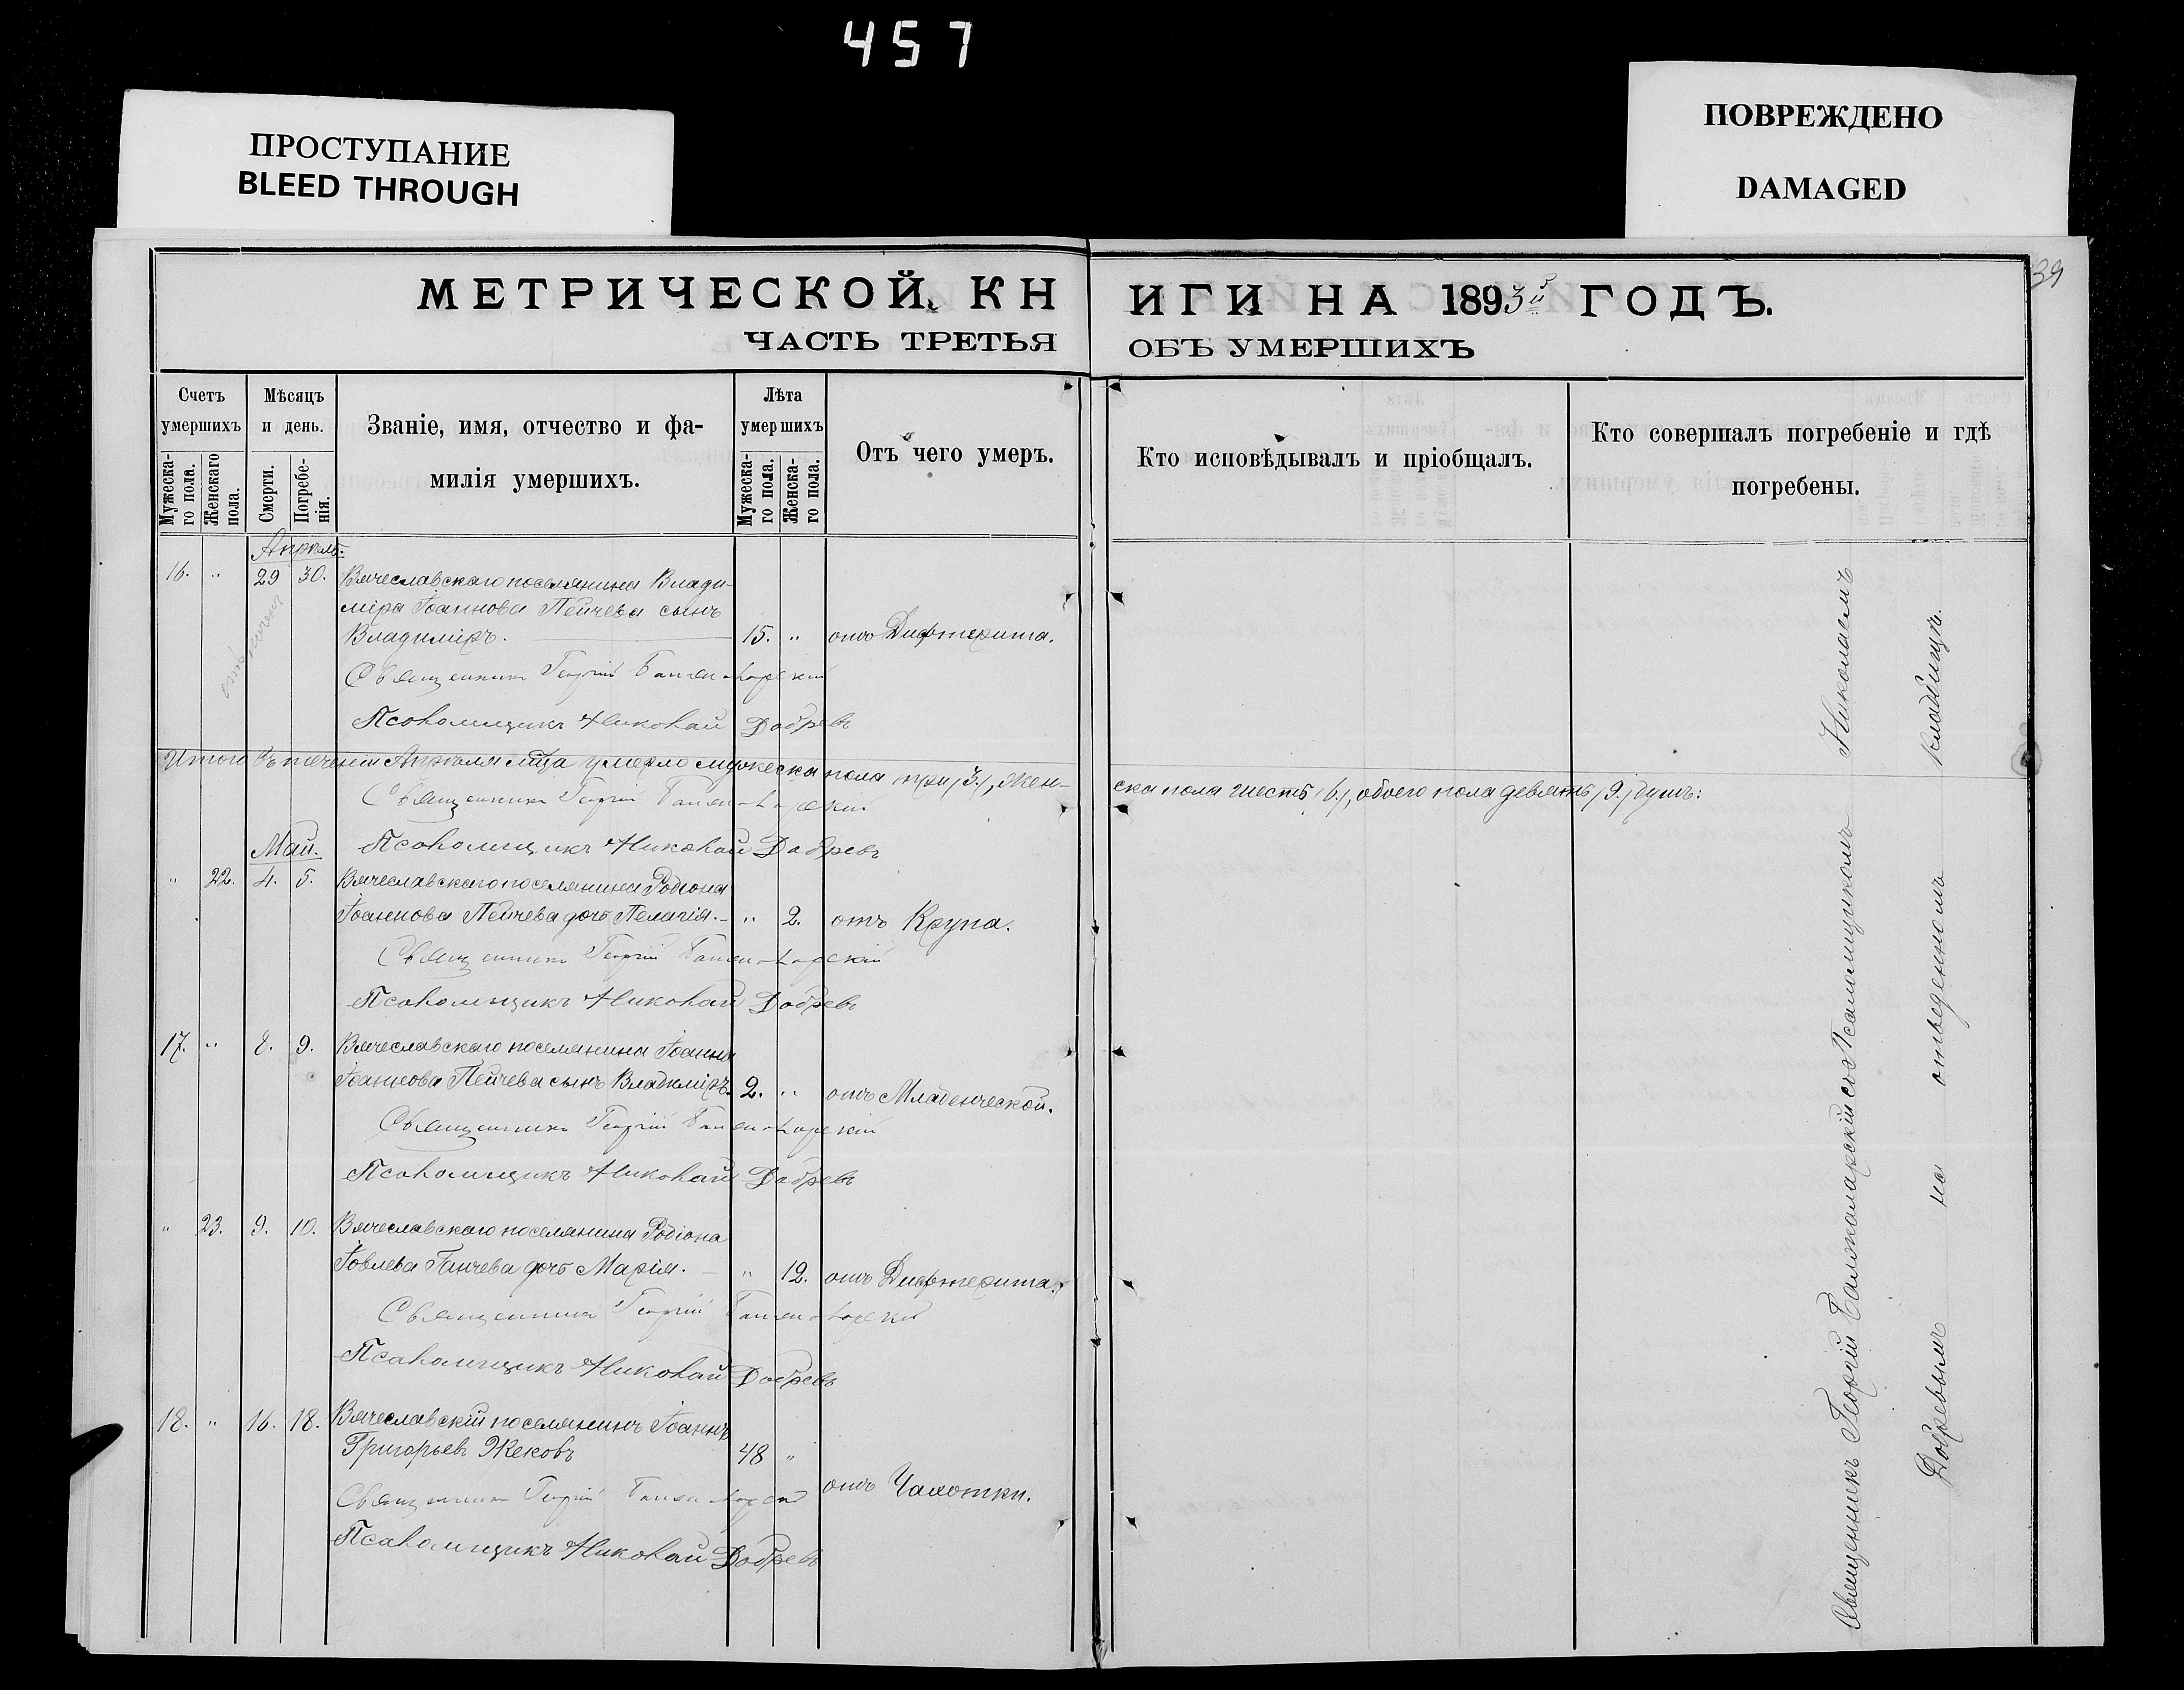 457
ПРОСТУПАНИЕ
BLEED THROUGH
ПОВРЕЖДЕНО
DAMAGED
39
МЕТРИЧЕСКОЙ КНИГИ НА 1893й ГОДЪ.
ЧАСТЬ ТРЕТЬЯ ОБЪ УМЕРШИХЪ
Счетъ умершихъ
Мужеска-го пола.
Женскаго пола.
Мѣсяцъ и день.
Смерти.
Погребе-нія.
Званіе, имя, отчество и фа-
милія умершихъ.
Лѣта умершихъ
Мужеска-го пола.
Женска-го пола.
Отъ чего умеръ.
Кто исповѣдывалъ и пріобщалъ.
Кто совершалъ погребеніе и гдѣ
погребены.
Апрѣль:
16. " 29 30. Вячеславскаго поселянина Влади-
міра Іоаннова Пейчева сынъ
Владиміръ. 15. " отъ Дифтерита.
Священникъ Георгій
Псаломщикъ Николай Добревъ
Итого въ теченіи Апрѣля м-ца умерло мужеска пола три /3./, жен-
ска пола шесть /6./, обоего пола девять /9./ душъ:
Священникъ Георгій
Псаломщикъ Николай Добревъ
Май.
" 22. 4. 5. Вячеславскаго поселянина Родіона
Іоаннова Пейчева дочь Пелагія. " 2. отъ Крупа.
Священникъ Георгій
Псаломщикъ Николай Добревъ
17. " 8. 9. Вячеславскаго поселянина Іоанна
Іоаннова Пейчева сынъ Владиміръ. 2. " отъ Младенческой.
Священникъ Георгій
Псаломщикъ Николай Добревъ
" 23. 9. 10. Вячеславскаго поселянина Родіона
Іовлева Ганчева дочь Марія. " 12. отъ Дифтерита.
Священникъ Георгій
Псаломщикъ Николай Добревъ
18. " 16. 18. Вячеславскій поселянинъ Іоаннъ
Григорьевъ Жековъ 48 "
отъ Чахотки.
Священникъ Георгій
Псаломщикъ Николай Добревъ
Священникъ Георгій съ Псаломщикомъ Николаемъ
Добревымъ на отведенномъ кладбищѣ.